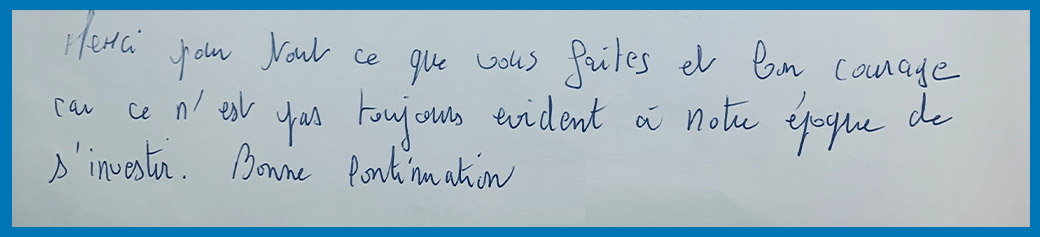 Merci pour tout ce que vous faites et bon courage
car ce n'est pas toujours evident à notre époque de
s'investir. Bonne continuation